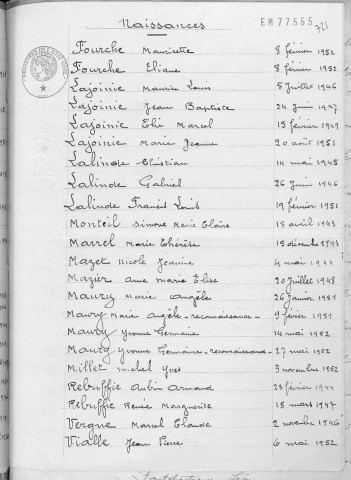 Naissances
EM77555
721
Fourche Mauricette 8 février 1952
Fourche Eliane 8 février 1952
Lajoinie Maurice Louis 5 Juillet 1946
Lajoinie Jean Baptiste 24 Juin 1947
Lajoinie Elié Marcel 15 février 1949
Lajoinie Marie Jeanne 20 août 1951
Lalinde Christian 14 mai 1945
Lalinde Gabriel 26 Juin 1946
Lalinde Francis Louis 19 février 1951
Monteil Simone Marie Claire 13 avril 1943
Marrel Marie Thérèse 15 décembre 1943
Mazet Nicole Jeannine 4 mai 1944
Mazier Anne Marie Elise 20 Juillet 1948
Maury Marie Angèle 26 Janvier 1951
Maury Marie Angèle - reconnaissance - 9 février 1951
Maury Yvonne Germaine 14 mai 1952
Maury Yvonne Germaine - reconnaissance - 27 mai 1952
Millet Michel Yves 3 novembre 1952
Rebuffie Aubin Armand 28 février 1944
Rebuffie Renée Marguerite 18 mars 1947
Vergne Marcel Claude 2 novembre 1946
Vialle Jean Pierre 6 mai 1952